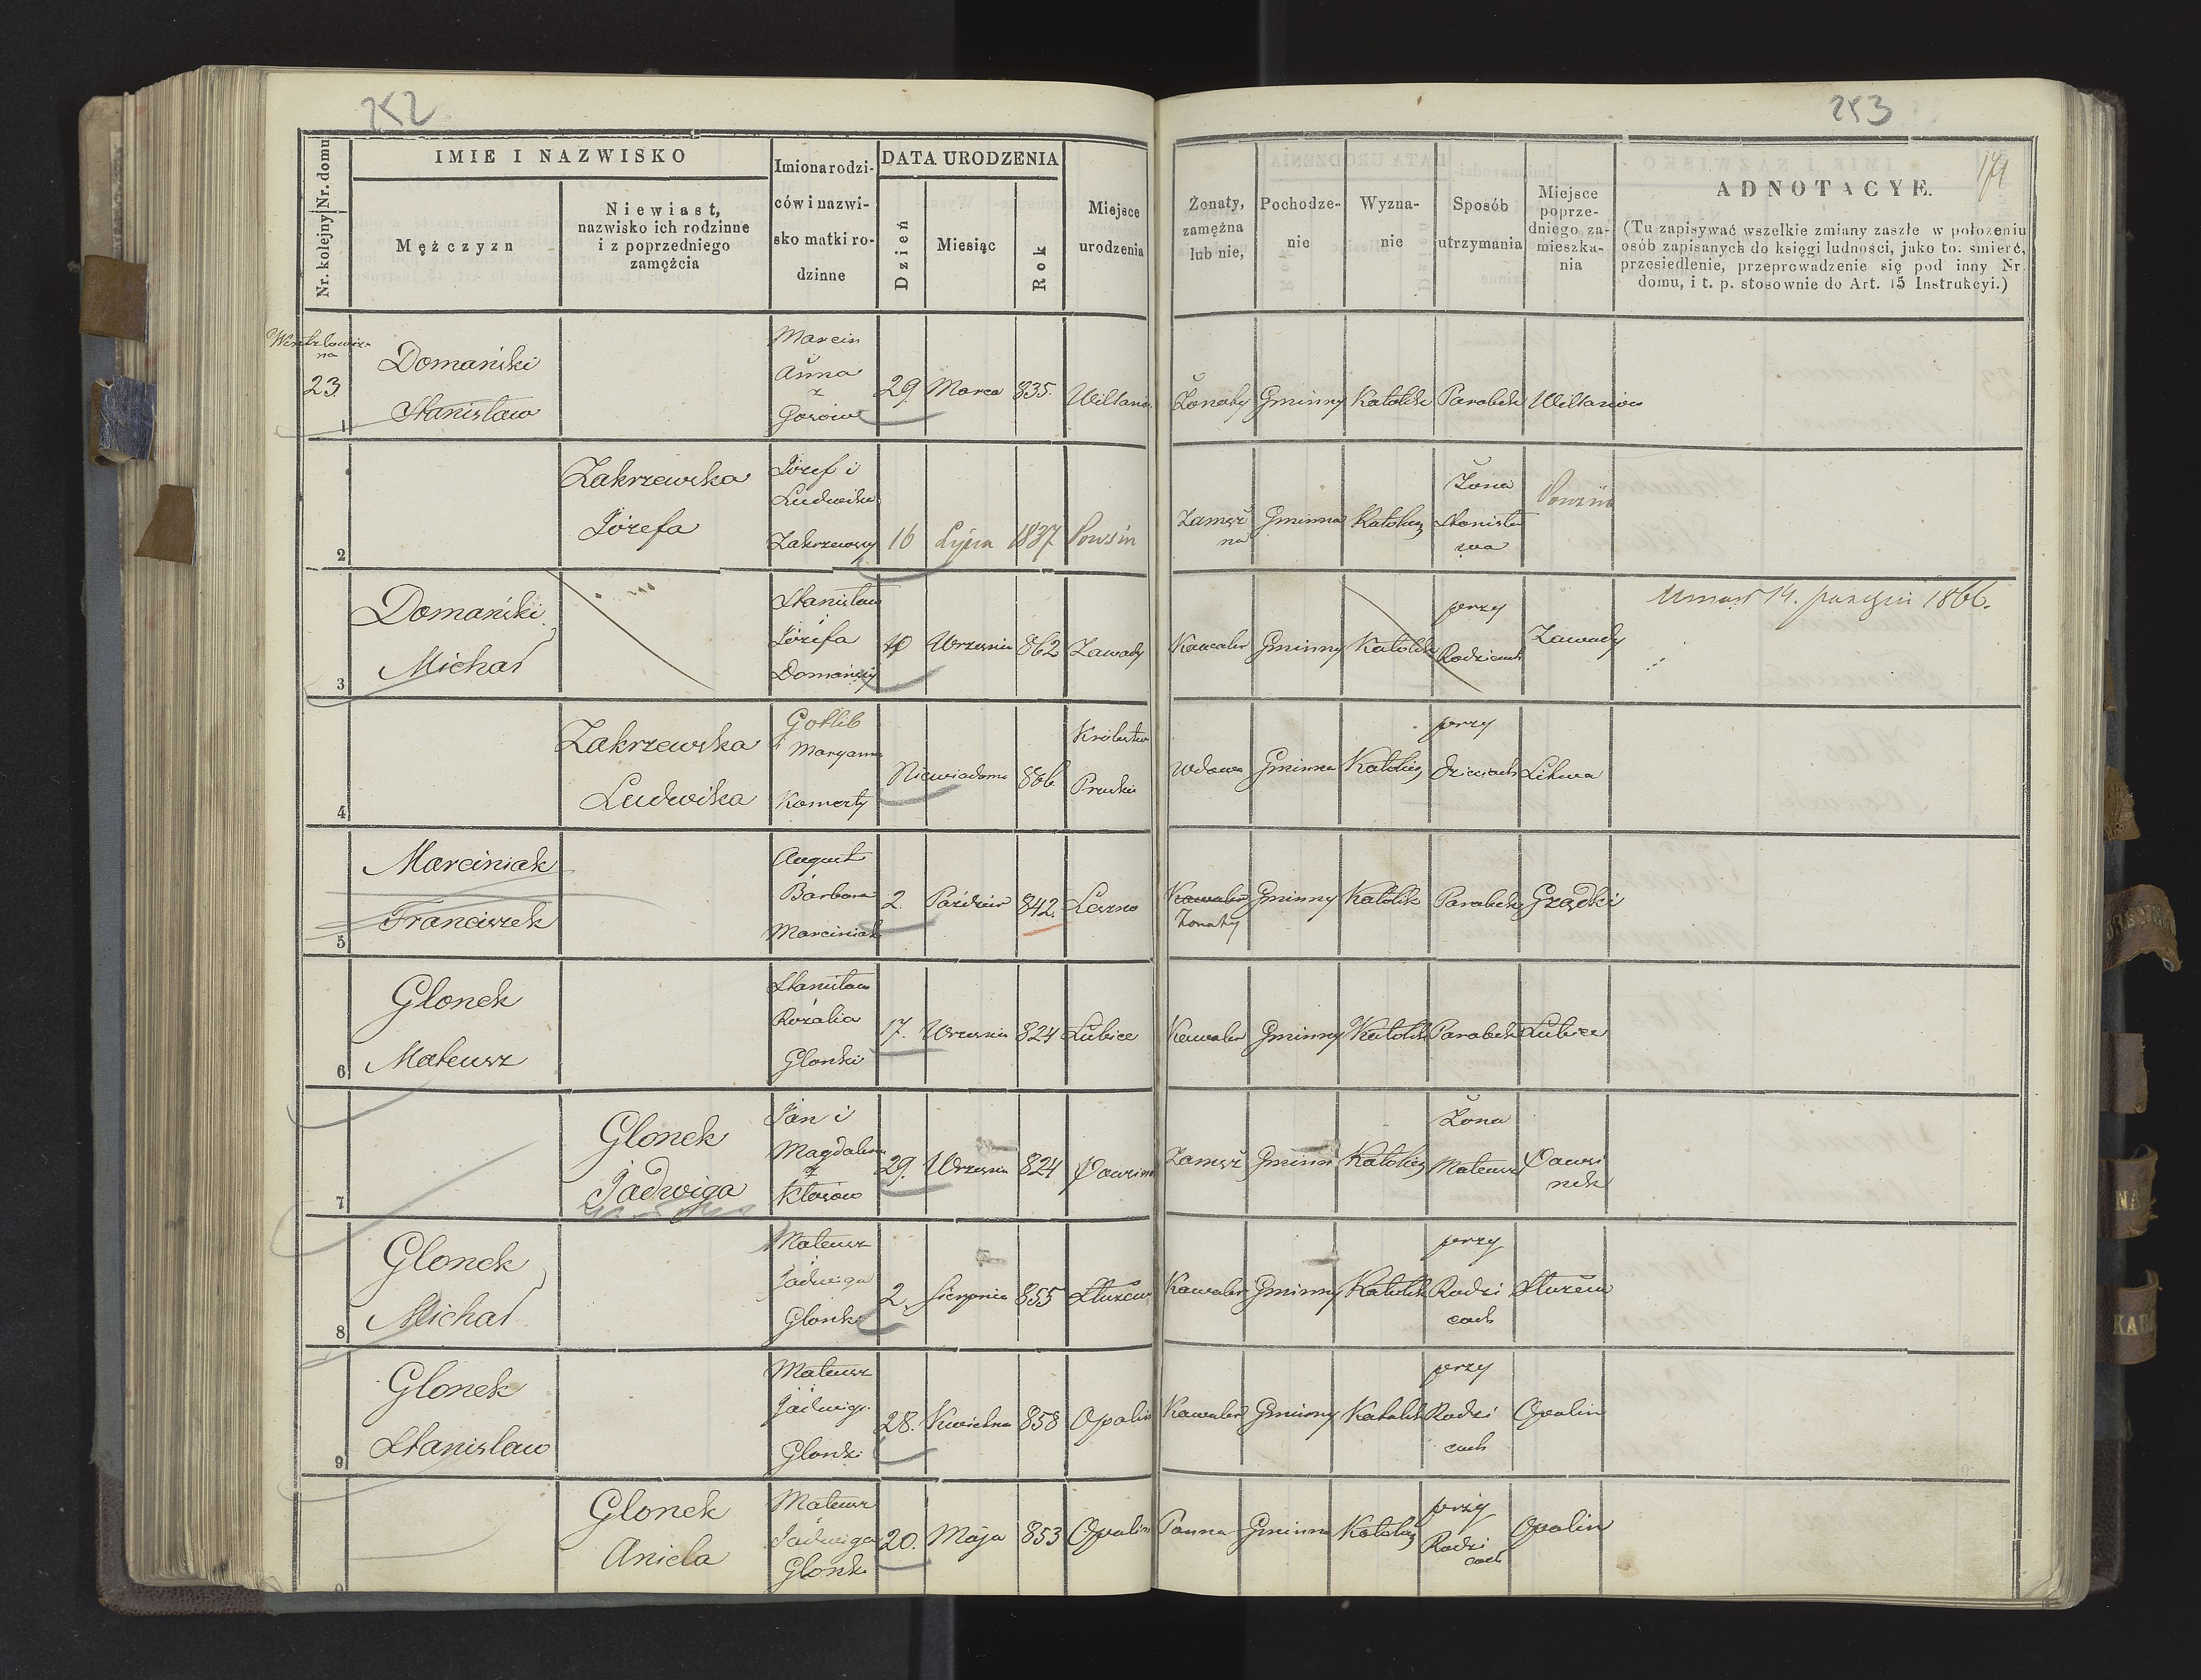 252
253
171
Nr. kolejny Nr. domu
IMIE I NAZWISKO
Mężczyzn
Niewiast,
nazwisko ich rodzinne
i z poprzedniego
zamęźcia
Imiona rodzi-
ców i nazwi-
sko matki ro-
dzinne
DATA URODZENIA
Dzień
Miesiąc
Rok
Miejsce
urodzenia
Żonaty,
zamężna
lub nie,
Pochodze-
nie
Wyzna-
nie
Sposób
utrzymania
Miejsce
poprze-
dniego za-
mieszka-
nia
ADNOTACYE.
(Tu zapisywać wszelkie zmiany zaszłe w położeniu
osób zapisanych do księgi ludności, jako to: śmierć,
przesiedlenie, przeprowadzenie się pod inny Nr.
domu, i t. p. stosownie do Art. 15 Instrukcyi.)
23.
1
Domański
Stanisław
Marcin
Anna
z
29. Marca 835.
Żonaty Gminny Katolik Parobek
2
Zakrzewska
Józefa
Józef i
Ludwika
Zakrzewscy
16 Lipca 1837 Powsin
Zamęż
na
Gminna
Żona
Stanisła
wa
Powsin
3
Domański
Michał
Stanisław
Józefa
Domańscy
10 Września 862 Zawady
Kawaler Gminny Katolik
przy
Rodzicach
Zawady
Umarł 14. 1866.
4
Zakrzewska
Ludwika
Gotlib
i Maryanna
Niewiadomo 806
Królestwo
Pruskie
Wdowa Gminna
przy
dzieciach
Litwa
5
Marciniak
Franciszek
August
Barbara
Marciniak
2. Paździer 842. Leszno
Kawaler
Żonaty
Gminny Katolik Parobek Grządki
6
Glonek
Mateusz
Stanisław
Rozalia
Glonki
17. Września 824 Lubice
Kawaler Gminny Katolik Parobek Lubice
7
Glonek
Jadwiga
Jan i
Magdalena
z
Kłosów
29. Września 824
Zamęż Gminna
Żona
Mateusz
8
Glonek
Michał
Mateusz
Jadwiga
Glonki
2. Sierpnia 855 Służew
Kawaler Gminny Katolik
przy
Rodzi
cach
Służew
9
Glonek
Stanisław
Mateusz
Jadwiga
Glonki
28. Kwietnia 858 Opalin
Kawaler Gminny Katolik
przy
Rodzi
cach
Opalin
Glonek
Aniela
Mateusz
Jadwiga
Glonki
20. Maja 853 Opalin
Panna Gminna
przy
Rodzi
cach
Opalin
NA
KABA